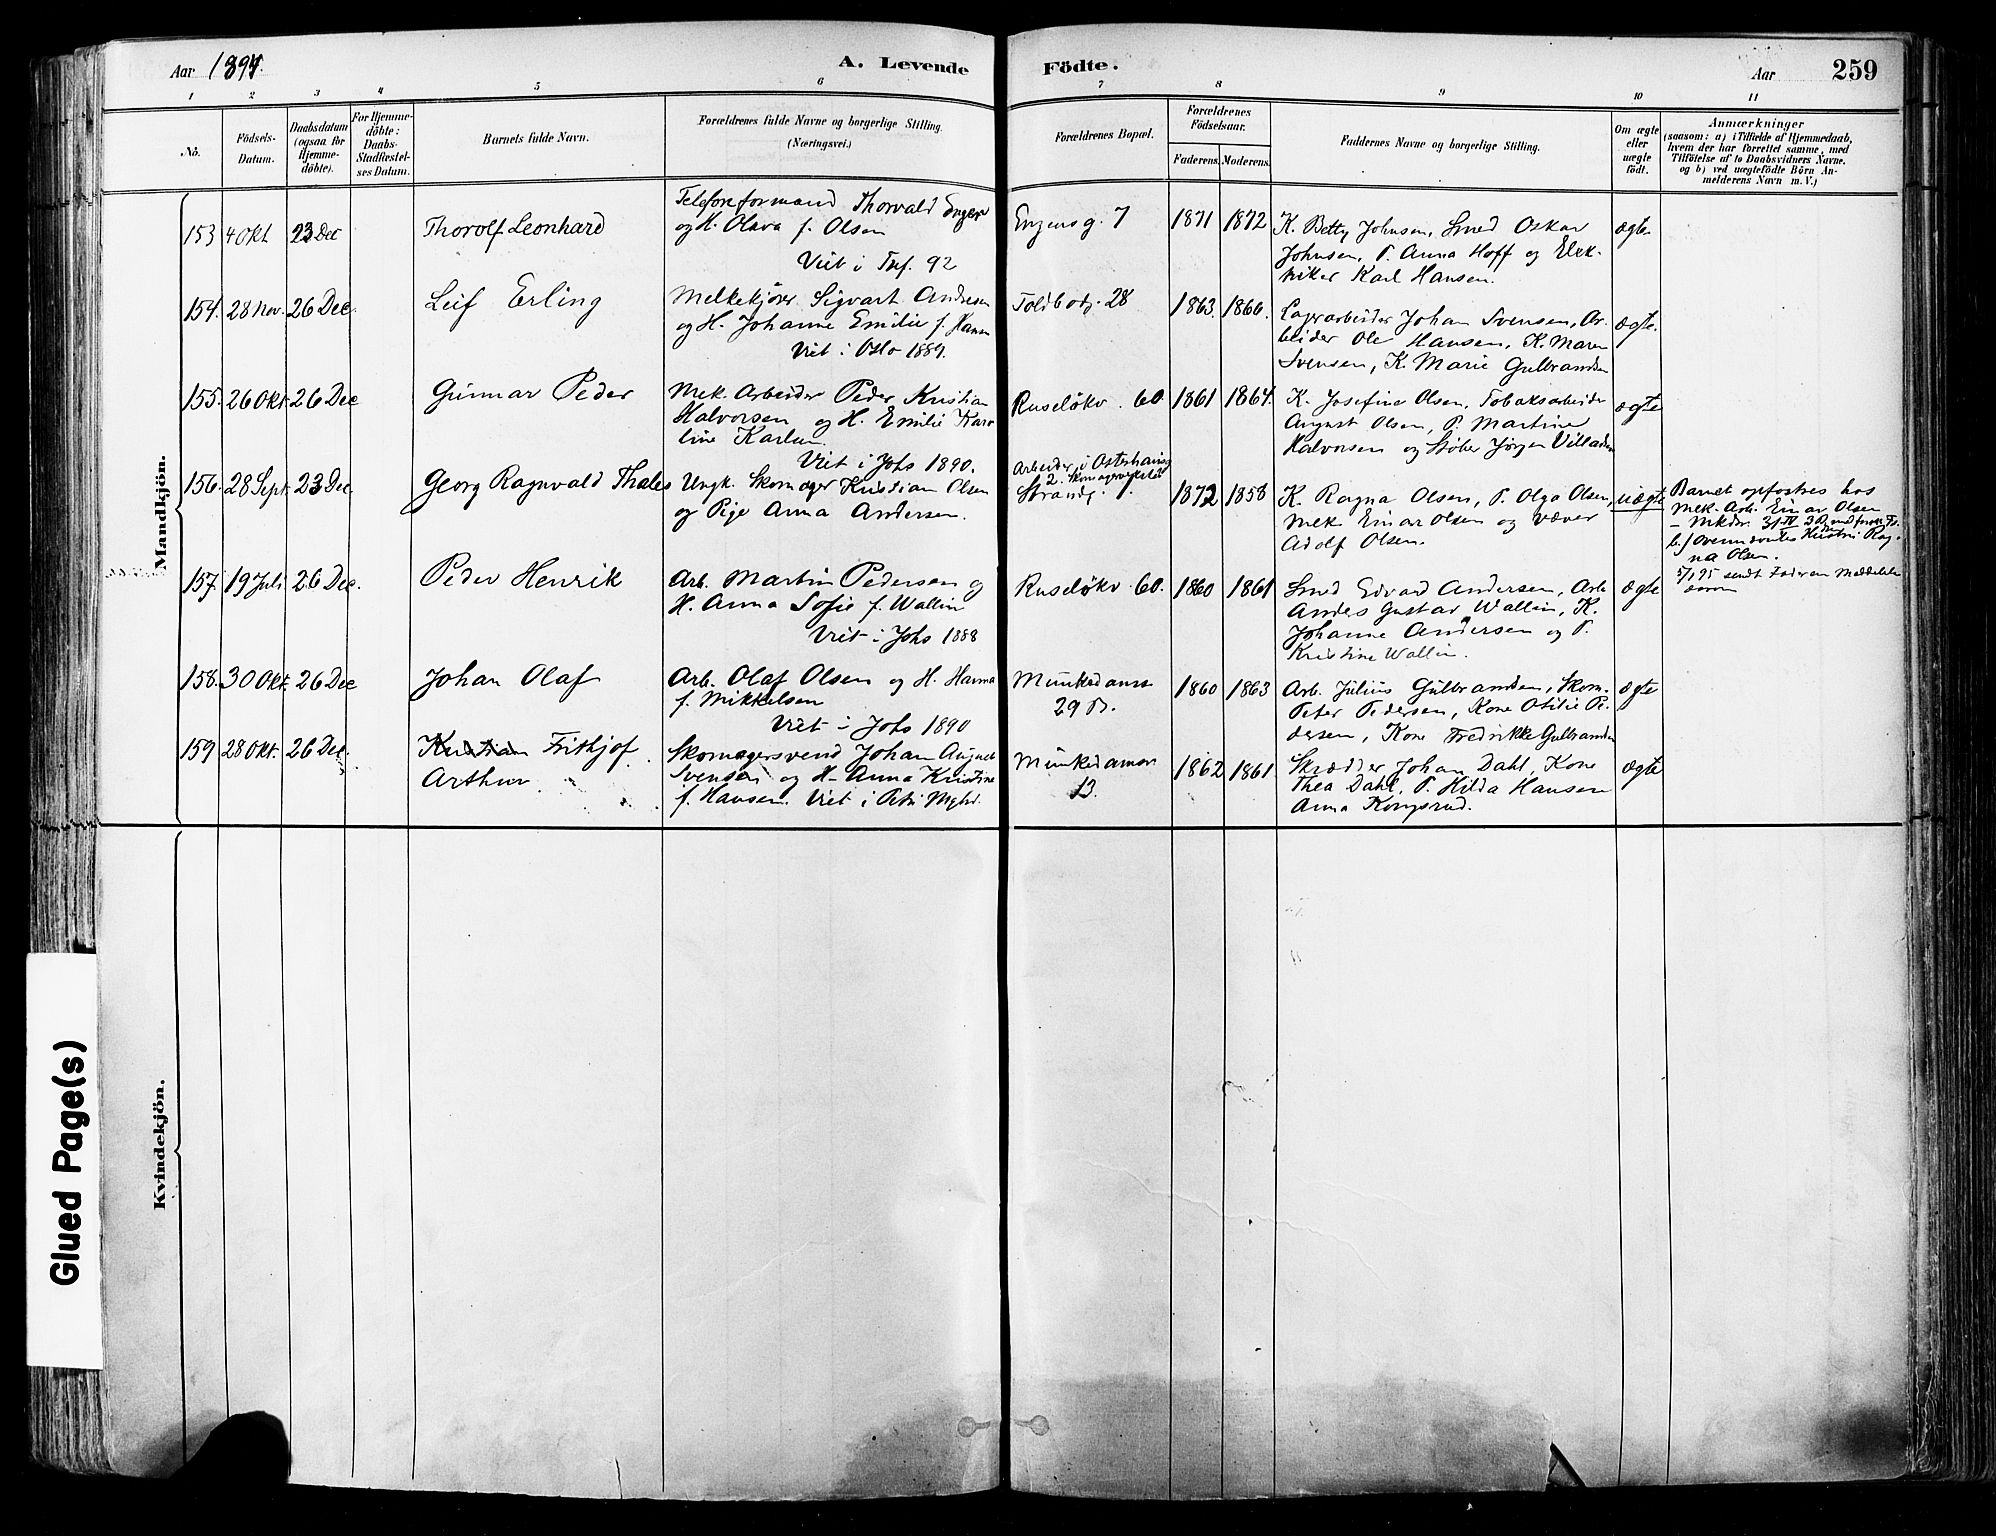 Aar 1894.
A. Levende Födte.
Aar 259
1 2 3 4 5 6 7 8 9 10 11
No.
Födsels-Datum.
Daabsdatum (ogsaa for Hjemme-döbte).
For Hjemme-döbte: Daabs-Stadfæstel-ses Datum.
Barnets fulde Navn.
Forældrenes fulde Navne og borgerlige Stilling. (Næringsvei.)
Forældrenes Bopæl.
Forældrenes Födselsaar.
Faderens. Moderens.
Faddernes Navne og borgerlige Stilling.
Om ægte eller uægte födt.
Anmærkninger
(saasom: a) i Tilfælde af Hjemmedaab,
hvem der har forrettet samme, med
Tilföielse af to Daabsvidners Navne.
og b) ved uægtefödte Börn An-
melderens Navn m. V.)
Mandkjön.
153 4 Okt 23 Dec Thorolf Leonhard
Telefonformand Thorvald Engen
og H. Olava f. Olsen
Viet i Trf. 92
Engensg. 7
1871 1872
K. Betty Johnsen, Smed Oskar
Johnsen, P. Anna Hoff og Elek-
triker Karl Hansen.
ægte
154. 28 Nov. 26 Dec. Leif Erling
Melkekjører Sigvart Andresen
og H. Johanne Emilie f. Hansen
Viet i Oslo 1889.
Toldbodg. 28
1863. 1866.
Lagerarbeider Johan Svensen, Ar-
beider Ole Hansen, K. Maren
Svensen, K. Marie Gulbrandsen
ægte.
155. 26 Okt. 26 Dec Gunnar Peder
Mek. Arbeider Peder Kristian
Halvorsen og H. Emilie Karo-
line Karlsen
Viet i Johs 1890.
Ruseløkv. 60.
1861 1864.
K. Josefine Olsen, Tobaksarbeider
August Olsen, P. Martine
Halvorsen og Støber Jørgen Villadsen
ægte
156. 28 Sept. 23 Dec. Georg Ragnvald Thales
Ungk. Skomager Kristian Olsen
og Pige Anna Andersen.
Arbeider i Osterhausg
2. Skomagerverksted
Strandg. 1.
1872 1858
K. Ragna Olsen, P. Olga Olsen,
Mek. Einar Olsen og Væver
Adolf Olsen.
uægte
Barnet opfostres hos
Mek. Arb. Einar Olsen
ovennævntes Hustru Rag-
na Olsen.
5/1 95 sendt Faderen Meddelelse
157. 19 Juli 26 Dec. Peder Henrik
Arb. Martin Pedersen og
H. Anna Sofie f. Wallin
Viet i Johs 1888
Ruseløkv. 60.
1860 1861
Smed Edvard Andersen, Arb.
Andes Gustav Wallin, K.
Johanne Andersen og P.
Kristine Wallin.
ægte
158. 30 Okt. 26 Dec Johan Olaf
Arb. Olaf Olsen og H. Hanna
f. Mikkelsen
Viet i Johs 1890
Munkedamsv
29 B.
1860 1863
Arb. Julius Gulbrandsen, Skom.
Peter Pedersen, Kone Otilie Pe-
dersen, Kone Fredrikke Gulbrandsen
ægte
159 28 Okt. 26 Dec. Kristian Frithjof
Arthur
Skomagersvend Johan August
Svensen og H. Anna Kristine
f. Hansen. Viet i Petri Mghd.
Munkedamsv
13.
1862 1861.
Skrædder Johan Dahl, Kone
Thea Dahl, P. Hilda Hansen
Anna Kongsrud.
ægte
Kvindekjön.
Glued Page(s)